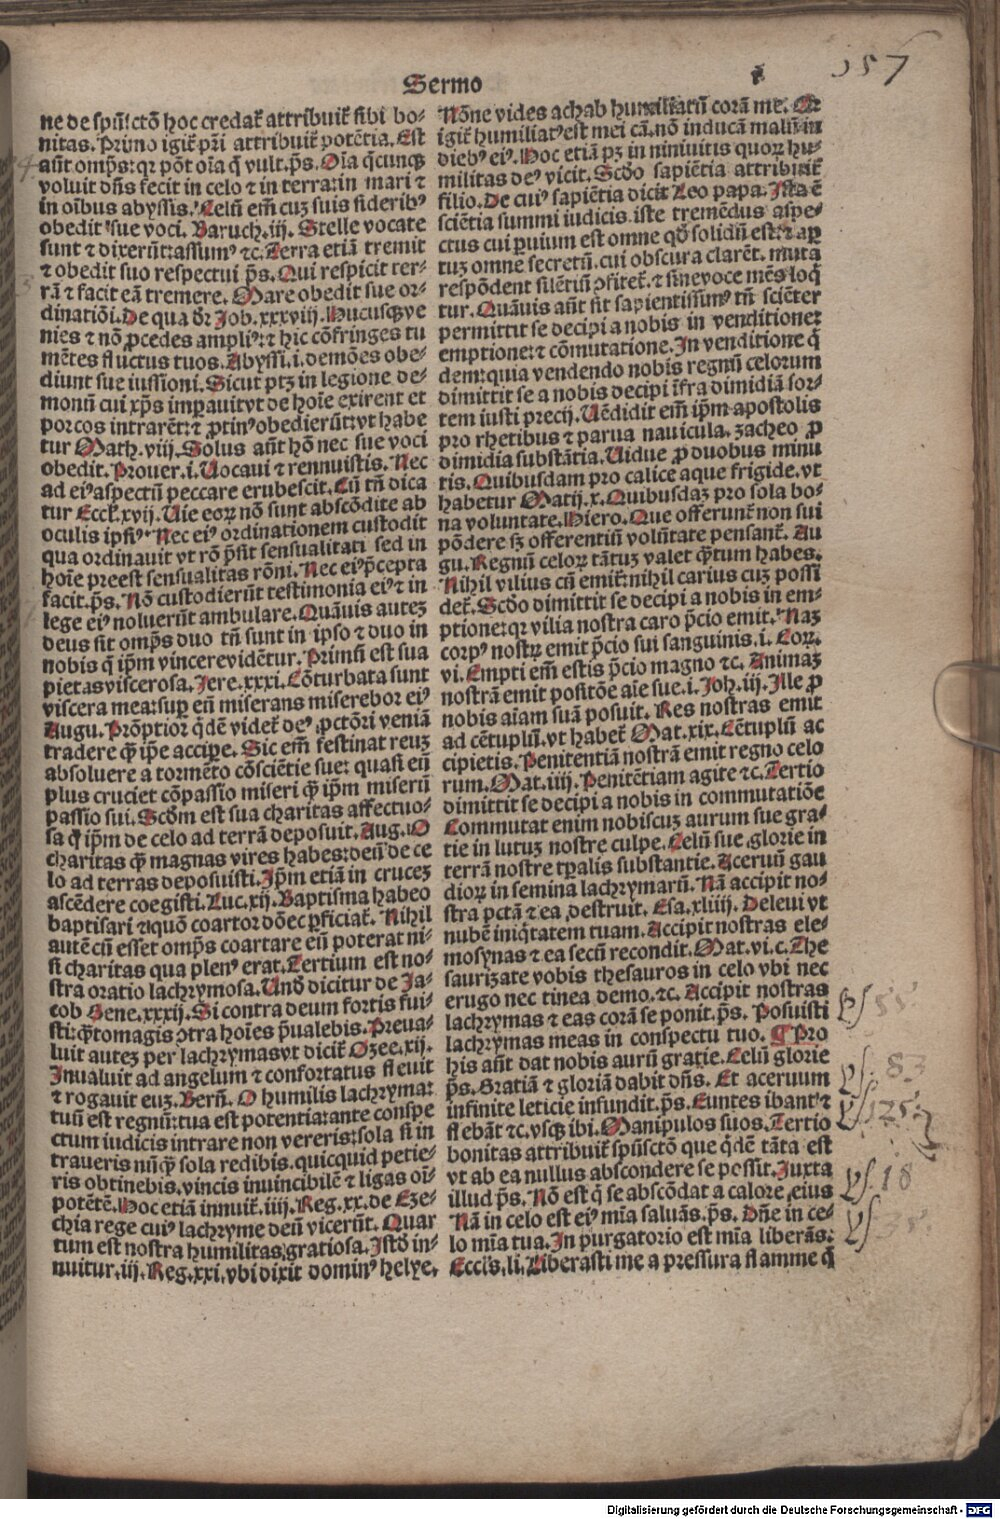 Sermo
357
ne de spũsctõ hoc credaẗ attribuiẗ sibi bo-
nitas. Primo igiẗ pr̃i attribuiẗ potẽtia. Est
aũt omp̃s: qꝛ põt oĩa q̃ vult. p̃s. Oĩa q̃cunqꝫ
voluit dñs fecit in celo ⁊ in terra: in mari ⁊
in oĩbus abyssis. Celũ em̃ cuꝫ suis siderib⁹
obedit sue voci. Baruch. iij. Stelle vocate
sunt ⁊ dixerũt: assum⁹ ⁊c. Terra etiã tremit
⁊ obedit suo respectui p̃s. Qui respicit ter-
rã ⁊ facit eã tremere. Mare obedit sue or-
dinatiõi. De qua dr̃ Job. xxxviij. Hucusqꝫ ve
nies ⁊ nõ ꝓcedes ampli⁹: ⁊ hic cõfringes tu
mẽtes fluctus tuos. Abyssi. i. demões obe-
diunt sue iussioni. Sicut ptꝫ in legione de-
monũ cui xp̃s imꝑauit vt de hoĩe exirent et
porcos intrarẽt: ⁊ ꝓtin⁹ obedierũt: vt habe
tur Math. viij. Solus aũt hõ nec sue voci
obedit. Prouer. i. Vocaui ⁊ rennuistis. Nec
ad ei⁹ aspectũ peccare erubescit. Cũ tñ dica
tur Eccẗ. xvij. Vie eoꝝ nõ sunt abscõdite ab
oculis ipsi⁹. Nec ei⁹ ordinationem custodit
qua ordinauit vt rõ p̃sit sensualitati sed in
hoĩe preest sensualitas rõni. Nec ei⁹ p̃cepta
facit. p̃s. Nõ custodierũt testimonia ei⁹ ⁊ in
lege ei⁹ noluerũt ambulare. Quãuis auteꝫ
deus sit omp̃s duo tñ sunt in ipso ⁊ duo in
nobis q̃ ip̃m vincere vidẽtur. Primũ est sua
pietas viscerosa. Jere. xxxi. Cõturbata sunt
viscera mea: suꝑ eũ miserans miserebor ei⁹
Augu. Prõptior q̃dẽ videẗ de⁹ pctõri veniã
tradere q̃ ip̃e acciꝑe. Sic em̃ festinat reuꝫ
absoluere a tormẽto cõsciẽtie sue: quasi eũ
plus cruciet cõpassio miseri q̃ ip̃m miserũ
passio sui. Scd̃m est sua charitas affectuo-
sa q̃ ip̃m de celo ad terrã deposuit. Aug. O
charitas q̃ magnas vires habes: deũ de ce
lo ad terras deposuisti. Jp̃m etiã in cruceꝫ
ascẽdere coegisti. Luc. xij. Baptisma habeo
baptisari ⁊ quõ coartor dõec ꝑficiaẗ. Nihil
autẽ cũ esset omp̃s coartare eũ poterat ni-
si charitas qua plen⁹ erat. Tertium est no-
stra oratio lachrymosa. Vnd̃ dicitur de Ja-
cob Gene. xxxij. Si contra deum fortis fui-
sti: q̃tomagis ꝯtra hoĩes p̃ualebis. Preua-
luit auteꝫ per lachrymas vt diciẗ Ozee. xij.
Jnualuit ad angelum ⁊ confortatus fleuit
⁊ rogauit euꝫ. Berñ. O humilis lachryma:
tuũ est regnũ: tua est potentia: ante conspe
ctum iudicis intrare non vereris: sola si in
traueris nũq̃ sola redibis. quicquid petie-
ris obtinebis. vincis inuincibilẽ ⁊ ligas oĩ-
potẽtẽ. Hoc etiã innuiẗ. iiij. Reg. xx. de Eze-
chia rege cui⁹ lachryme deũ vicerũt. Quar
tum est nostra humilitas gratiosa. Jstd̃ in-
nuitur. iij. Reg. xxi. vbi dixit domin⁹ helye.
Nõne vides achab humiliatũ corã me. Qꝛ
igiẗ humiliat⁹ est mei cã. nõ inducã malũ in
dieb⁹ ei⁹. Hoc etiã pꝫ in niniuitis quoꝝ hu-
militas de⁹ vicit. Scd̃o sapiẽtia attribuiẗ
filio. De cui⁹ sapiẽtia dicit Leo papa. Jsta ẽ
sciẽtia summi iudicis. iste tremẽdus aspe-
ctus cui ꝑuium est omne qd̃ solidũ est: ⁊ aꝑ
tuꝫ omne secretũ. cui obscura clarẽt. muta
respõdent silẽtiũ ꝯfiteẗ. ⁊ sine voce mẽs loq̃
tur. Quãuis aũt sit sapientissim⁹ tñ sciẽter
permittit se decipi a nobis in venditione:
emptione: ⁊ cõmutatione. Jn venditione q̃
dem: quia vendendo nobis regnũ celorum
dimittit se a nobis decipi ĩfra dimidiã sor-
tem iusti precij. Vẽdidit em̃ ip̃m apostolis
pro rhetibus ⁊ parua nauicula. zacheo ꝓ
dimidia substãtia. Vidue ꝓ duobus minu
tis. Quibusdam pro calice aque frigide. vt
habetur Matij. x. Quibusdaꝫ pro sola bo-
na voluntate. Hiero. Que offerunẗ non sui
põdere sꝫ offerentiũ volũtate pensanẗ. Au
gu. Regnũ celoꝝ tãtuꝫ valet q̃tum habes.
Nihil vilius cũ emiẗ: nihil carius cuꝫ possi
deẗ. Scd̃o dimittit se decipi a nobis in em-
ptione: qꝛ vilia nostra caro p̃cio emit. Naꝫ
corp⁹ nostꝝ emit p̃cio sui sanguinis. i. Coꝝ.
vi. Empti em̃ estis p̃cio magno ⁊c. Animaꝫ
nostrã emit positõe aĩe sue. i. Joh. iij. Jlle ꝓ
nobis aĩam suã posuit. Res nostras emit
ad cẽtuplũ. vt habeẗ Mat. xix. Cẽtuplũ ac
cipietis. Penitentiã nostrã emit regno celo
rum. Mat. iiij. Penitẽtiam agite ⁊c. Tertio
dimittit se decipi a nobis in commutatiõe
Commutat enim nobiscuꝫ aurum sue gra-
tie in lutuꝫ nostre culpe. Celũ sue glorie in
terrã nostre tꝑalis substantie. Aceruũ gau
dioꝝ in semina lachrymarũ. Nã accipit no-
stra pctã ⁊ ea destruit. Esa. xliiij. Deleui vt
nubẽ iniq̃tatem tuam. Accipit nostras ele-
mosynas ⁊ ea secũ recondit. Mat. vi. c. The
saurizate vobis thesauros in celo vbi nec
erugo nec tinea demo. ⁊c. Accipit nostras
lachrymas ⁊ eas corã se ponit. p̃s. Posuisti
lachrymas meas in conspectu tuo. ¶ Pro
his aũt dat nobis aurũ gratie. Celũ glorie
p̃s. Gratiã ⁊ gloriã dabit dñs. Et aceruum
infinite leticie infundit. p̃s. Euntes ibant ⁊
flebãt ⁊c. vsqꝫ ibi. Manipulos suos. Tertio
bonitas attribuiẗ spũsctõ que q̃dẽ tãta est
vt ab ea nullus abscondere se possit. Juxta
illud p̃s. Nõ est q̃ se abscõdat a calore eius
Nã in celo est ei⁹ mĩa saluãs. p̃s. Dñe in ce-
lo mĩa tua. Jn purgatorio est mĩa liberãs:
Eccl̃s. li. Liberasti me a pressura flamme q̃
ψ 55.
ψ. 83
ψ 125.
ψ. 18
ψ 35.
Digitalisierung gefördert durch die Deutsche Forschungsgemeinschaft - DFG